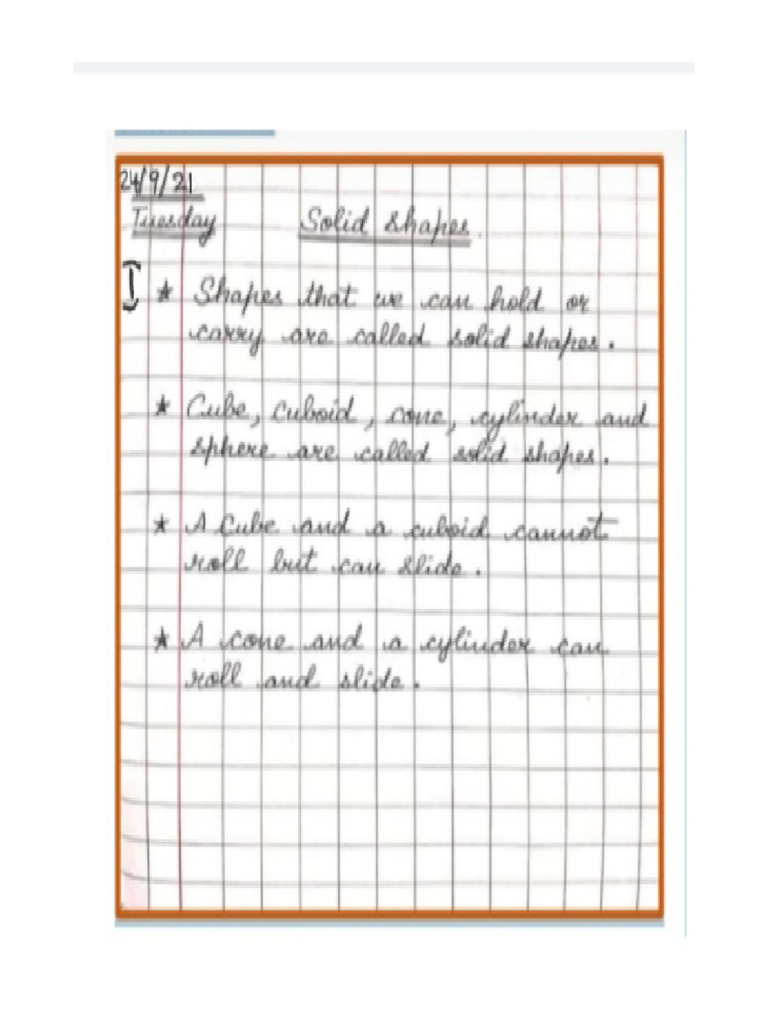 24/9/21
Tuesday Solid shapes.
I ★ Shapes that we can hold or
carry are called solid shapes.
★ Cube, cuboid, cone, cylinder and
sphere are called solid shapes.
★ A Cube and a cuboid cannot
roll but can slide.
★ A cone and a cylinder can
roll and slide.